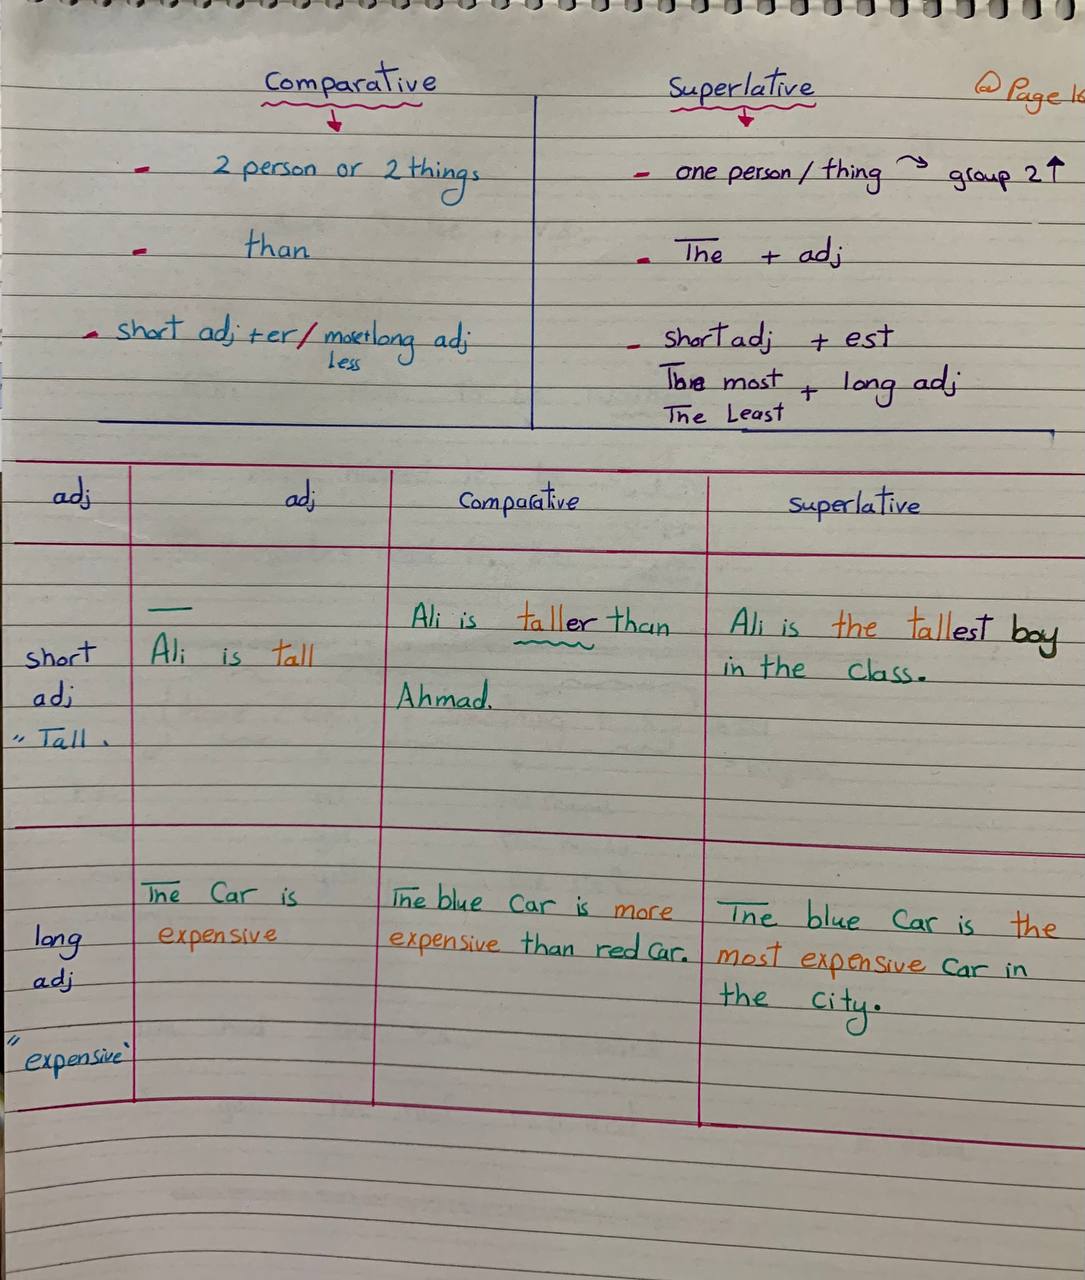 Comparative
2 person or 2 things
than
short adj +er / more+long adj
less
Superlative
@ Page
one person / thing → group 2↑
The + adj
short adj + est
The most + long adj
The Least
adj adj Comparative superlative
short
adj
"Tall.
Ali is tall
Ali is taller than
Ahmad.
Ali is the tallest boy
in the class.
long
adj
"expensive"
The Car is
expensive
The blue Car is more
expensive than red Car.
The blue Car is the
most expensive Car in
the city.